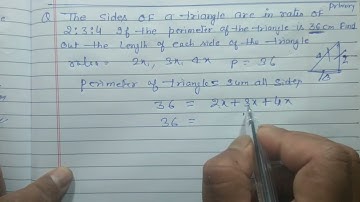 Primary
Q The sides OF a triangle are in ratio of
2:3:4 If the perimeter of the triangle is 36 cm Find
out the length of each side of the triangle
ratio = 2x, 3x, 4x P = 36
perimeter of triangle = sum all sides
36 = 2x + 3x + 4x
36 =